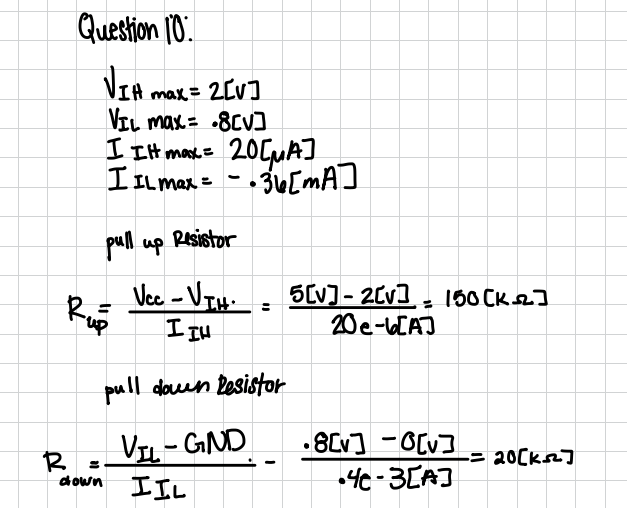 Question 10:
V_IH max = 2[V]
V_IL max = .8[V]
I_IH max = 20[μA]
I_IL max = - .36[mA]
pull up Resistor
R_up = (Vcc - V_IH.) / I_IH = (5[V] - 2[V]) / (20e-6[A]) = 150[KΩ]
pull down Resistor
R_down = (V_IL - GND.) / I_IL - (.8[V] - 0[V]) / (.4e-3[A]) = 20[KΩ]